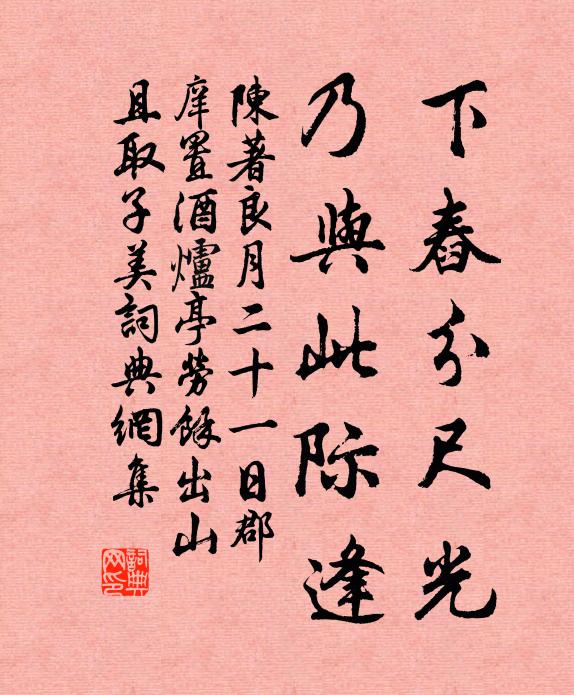 下舂分尺光
乃與此際逢
陳著良月二十一日郡
庠置酒爐亭勞餘出山
且取子美詞典網集
詞典網印